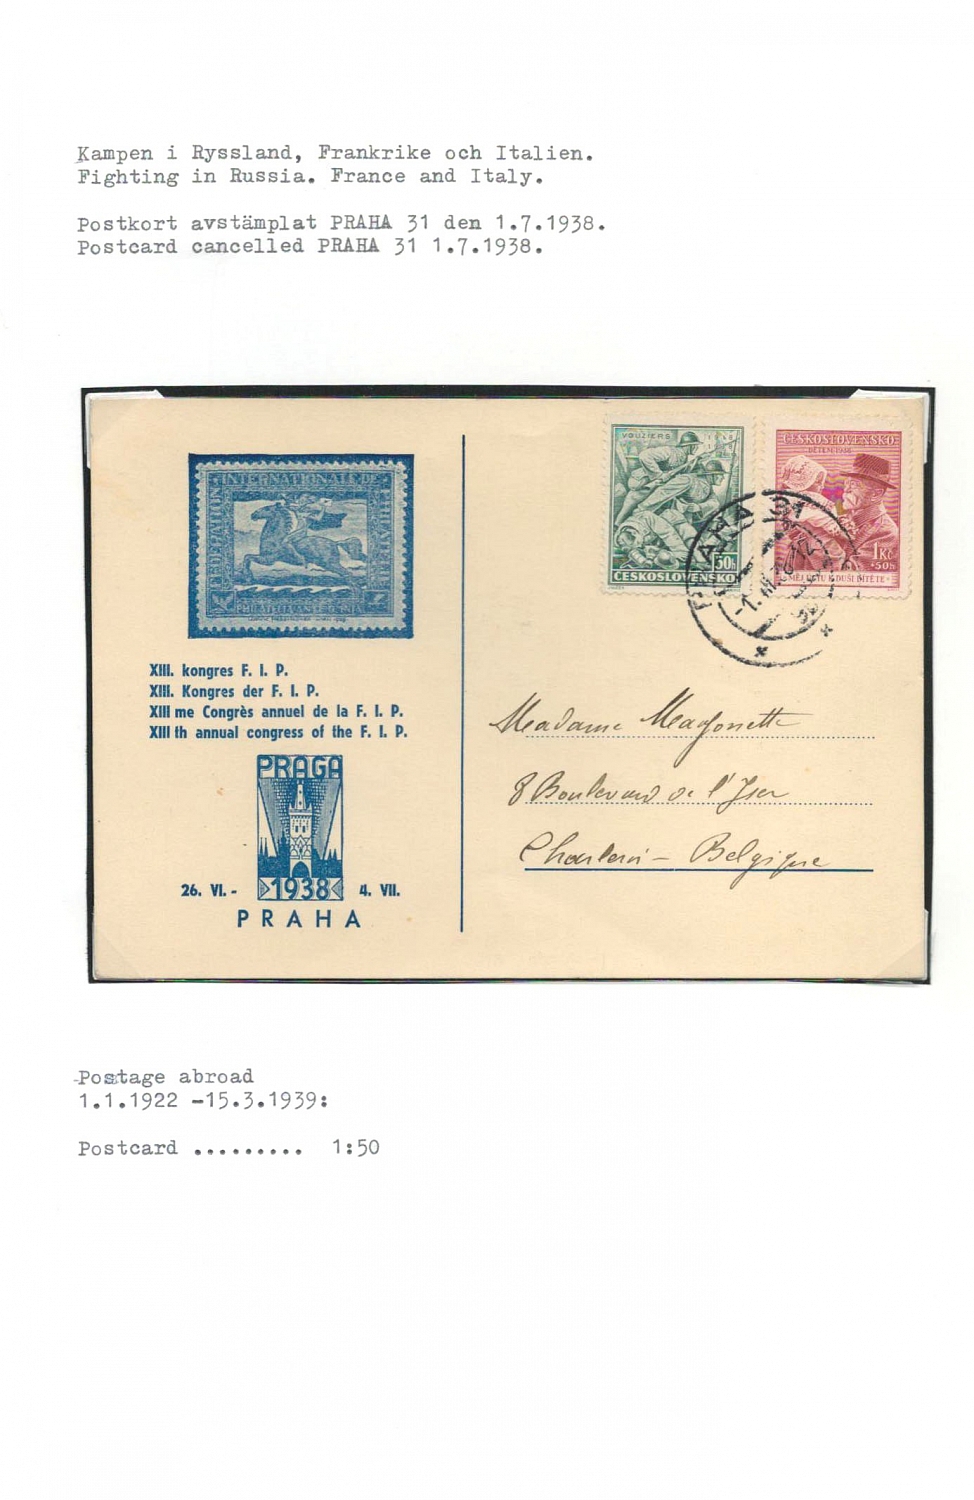 Kampen i Ryssland, Frankrike och Italien.
Fighting in Russia. France and Italy.
Postkort avstämplat PRAHA 31 den 1.7.1938.
Postcard cancelled PRAHA 31 1.7.1938.
FEDERATION INTERNATIONALE DE PHILATELIE
XIII. kongres F. I. P.
XIII. Kongres der F. I. P.
XIII me Congrès annuel de la F. I. P.
XIII th annual congress of the F. I. P.
PRAGA
26. VI. - 1938 4. VII.
PRAHA
VOUZIERS 1918 1938
50h
ČESKOSLOVENSKO
ČESKOSLOVENSKO
DĚTEM 1938
1Kč
+50h
PRAHA 31
Madame Magonette
8 Boulevard de l'Yser
Charleroi - Belgique
Postage abroad
1.1.1922 -15.3.1939:
Postcard ......... 1:50